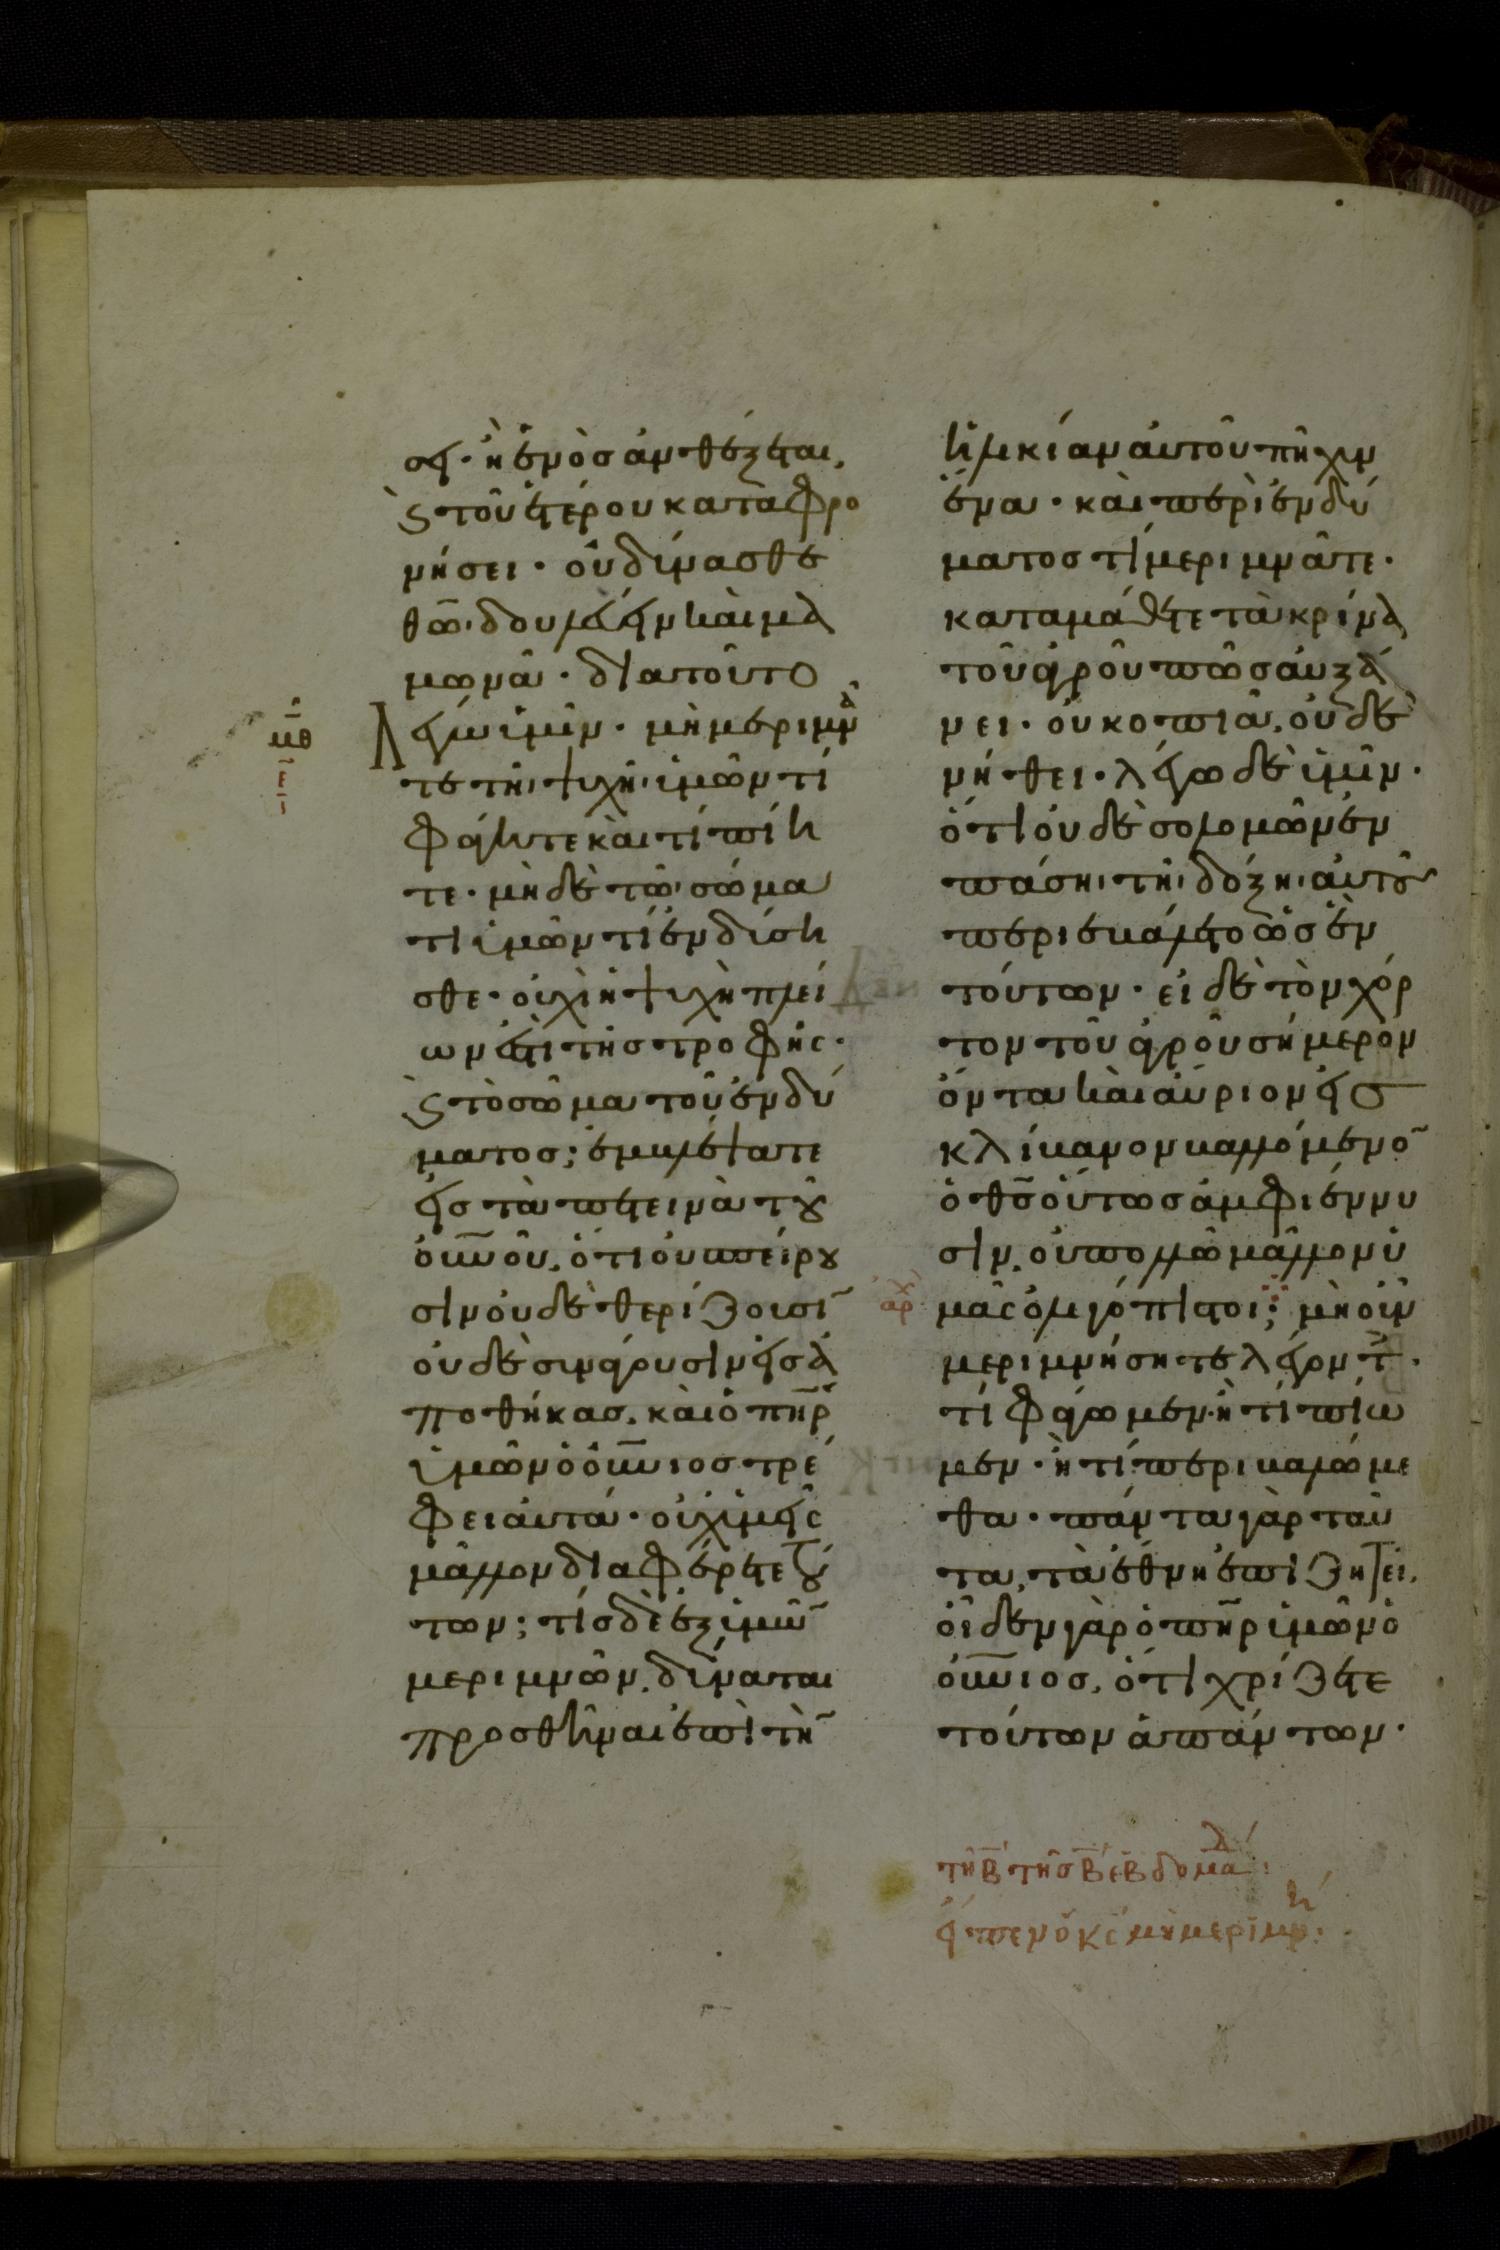 σει· ἢ ἑνὸσ ἀνθέξεται,
ϗ τοῦ ἑτέρου καταφρο
νήσει· οὐ δύνασθε
θ̅ω̅ δουλεύειν καὶ μα
μωνᾶ· διατοῦτο
Λέγω ὑμῖν· μὴ μεριμνᾶ
μθ
ε
τε τῆι ψυχῆι ὑμῶν τί
φάγητε καὶ τί πίη
τε· μὴδὲ τῶι σώμα
τι ὑμῶν τί ἐνδύση
σθε· οὐχὶ ἡ ψυχὴ πλεί
ων ἐστι τῆσ τροφῆς·
ϗ τὸ σῶμα τοῦ ἐνδύ
ματοσ; ἐμβλέψατε
εἰσ τὰ πετεινὰ τοῦ
ο̅υ̅ν̅οῦ, ὅτι οὐ σπείρου
σιν οὐδὲ θερίζουσῑ
οὐδὲ συνάγουσιν εἰσ ἀ
ποθήκασ, καὶ ὁ π̅η̅ρ̅
ὑμῶν ὁ ο̅υ̅ν̅ιοσ τρέ
φει αὐτά· οὐχ ὑμεῖς
μᾶλλον διαφέρετε τού
των; τίσ δὲ ἐξ ὑμῶ̅
μεριμνῶν, δύναται
προσθῆναι ἐπὶ τὴ̅
ἡλικίαν αὐτοῦ πῆχυν
ἕνα· καὶ περὶ ἐνδύ
ματοσ τί μεριμνᾶτε·
καταμάθετε τὰ κρίνα
τοῦ ἀγροῦ πῶσ αὐξά
νει· οὐ κοπιᾶ, οὐδὲ
νήθει· λέγω δὲ ὑμῖν·
ὅτι οὐδὲ σολομῶν ἐν
πάσηι τῆι δόξηι αὐτοῦ
περιεβάλετο ὡσ ἓν
τούτων· εἰ δὲ τὸν χόρ
τον τοῦ ἀγροῦ σήμερον
ὄντα καὶ αὔριον εἰσ
κλίβανον βαλλόμενο̅
ὁ θ̅σ̅ οὕτωσ ἀμφιέννυ
σιν, οὐ πολλῶ μᾶλλον ὑ
μᾶς ὀλιγόπιστοι; μὴ οὖν
αρχ
μεριμνήσητε λέγοντ·
τί φάγωμεν· ἢ τί πίω
μεν· ἢ τί περιβαλώμε
θα· πάντα γὰρ ταῦ
τα, τὰ ἔθνη ἐπιζητεῖ,
οἶδεν γὰρ ὁ π̅η̅ρ ὑμῶν ὁ
ο̅υ̅ν̅ιοσ, ὅτι χρίζετε
τούτων ἁπάντων·
τῆ β̅ τῆσ β̅ ἑβδομαδ
εἶπεν ὁ κ̅ς̅ μὴ μεριμνη